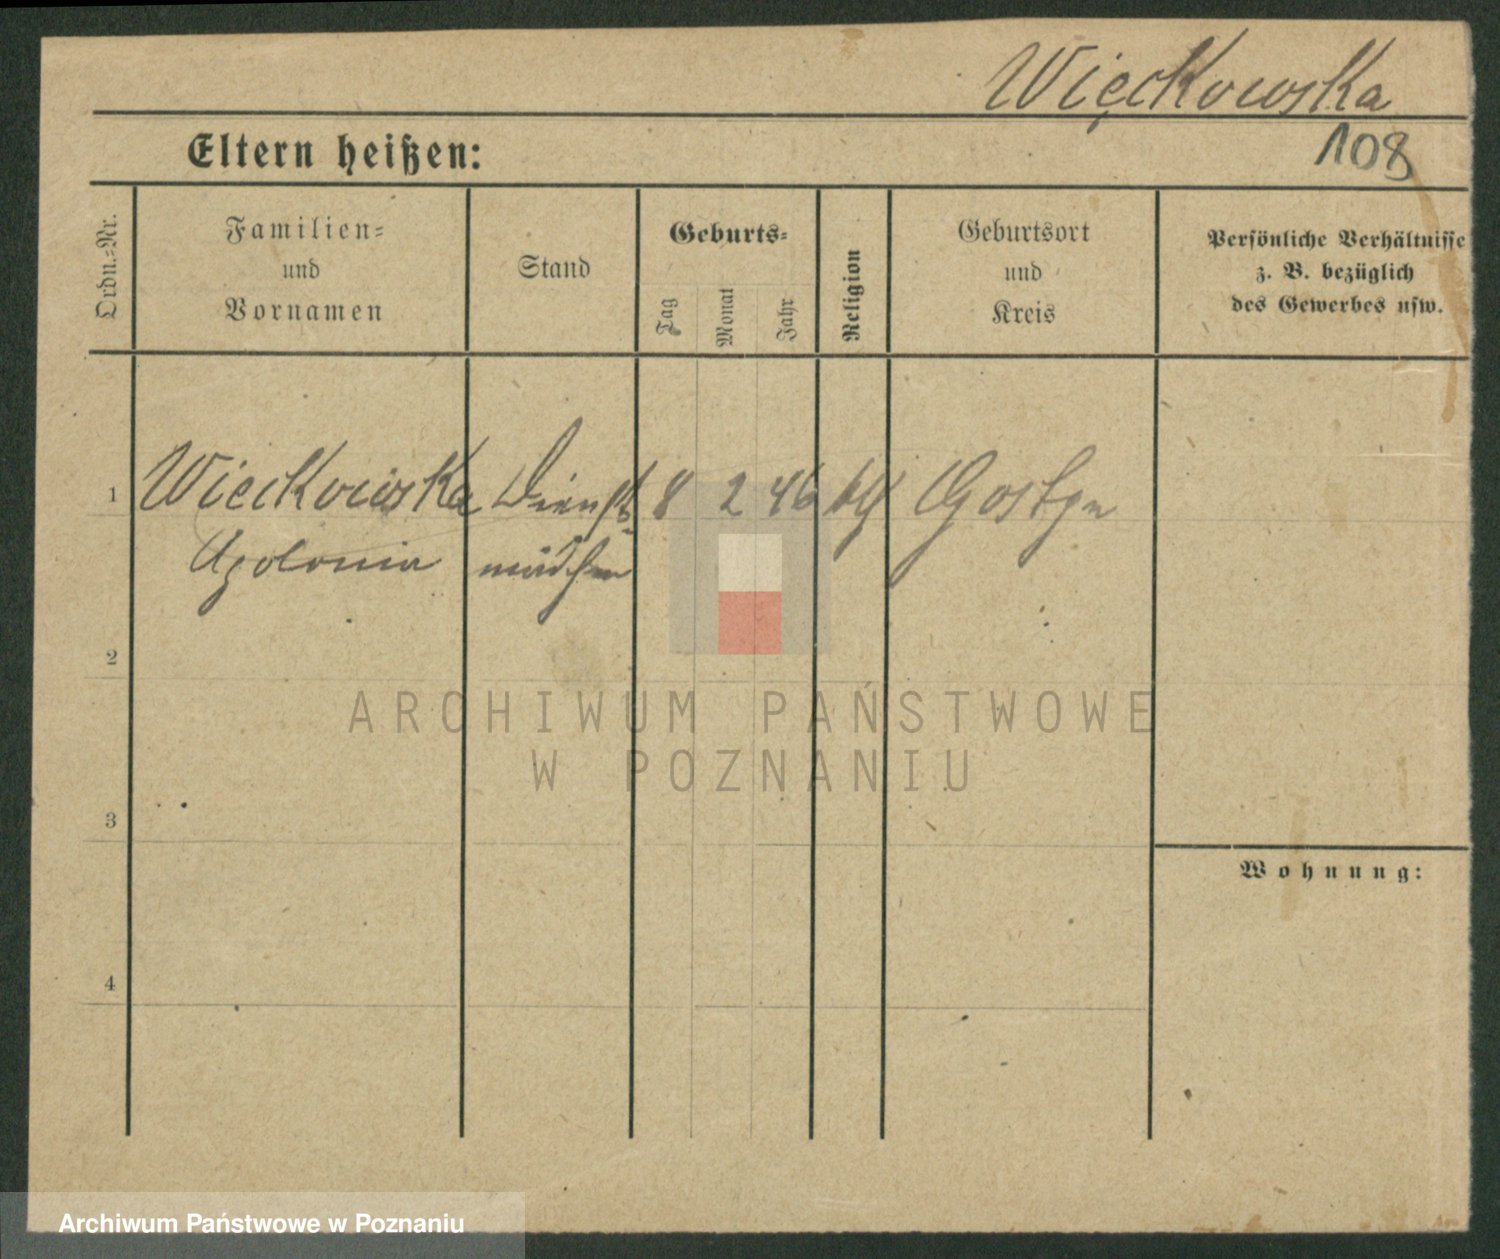 Więckowska
108
Eltern heißen:
Ordn.-Nr.
Familien=
und
Vornamen
Stand
Geburts=
Tag
Monat
Jahr
Religion
Geburtsort
und
Kreis
Persönliche Verhältnisse
z. B. bezüglich
des Gewerbes usw.
1 Wieckowska Dienst 8 2 46 Gostyn
Apolonia mädchen
2
ARCHIWUM PAŃSTWOWE
W POZNANIU
3
Wohnung:
4
Archiwum Państwowe w Poznaniu